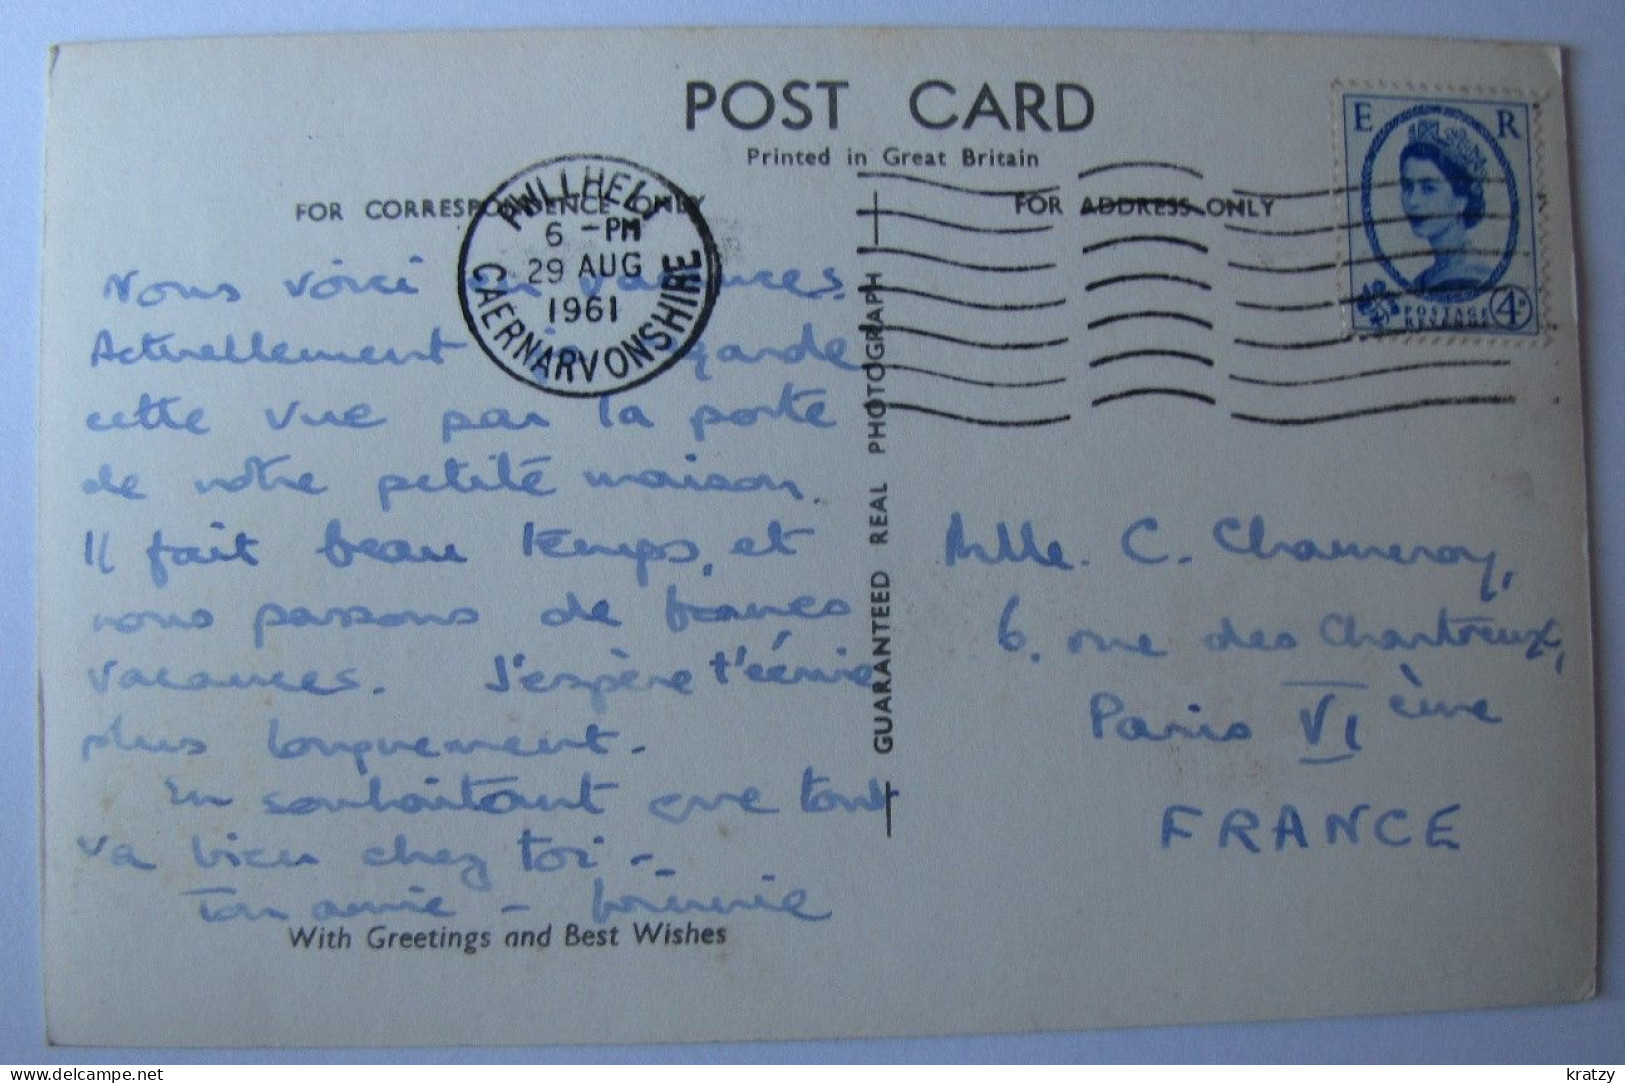 POST CARD
Printed in Great Britain
FOR CORRESPONDENCE ONLY
FOR ADDRESS ONLY
PWLLHELI
6 - PM
29 AUG
1961
CAERNARVONSHIRE
E R
POSTAGE
REVENUE
4D
Nous voici en vacances.
Actuellement je regarde
cette vue par la porte
de notre petite maison.
Il fait beau temps, et
nous passons de bonnes
vacances. J'espère t'écrire
plus longuement.
En souhaitant que tout
va bien chez toi -
Ton amie -
With Greetings and Best Wishes
GUARANTEED REAL PHOTOGRAPH
Mlle. C. Chameroy,
6. rue des Chartreux,
Paris VI ème
FRANCE
kratzy